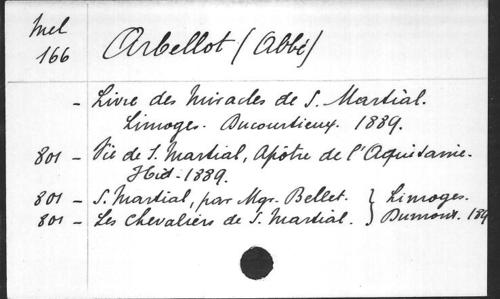 Mel
166
Arbellot (Abbé)
- Livre des Miracles de S. Martial.
Limoges. Ducourtieux. 1889.
801 - Vie de S. Martial, Apôtre de l'Aquitanie.
Hid - 1889.
801 - S. Martial, par Mgr. Bellet. } Limoges.
801 - Les Chevaliers de S. Martial. } Dumont. 189